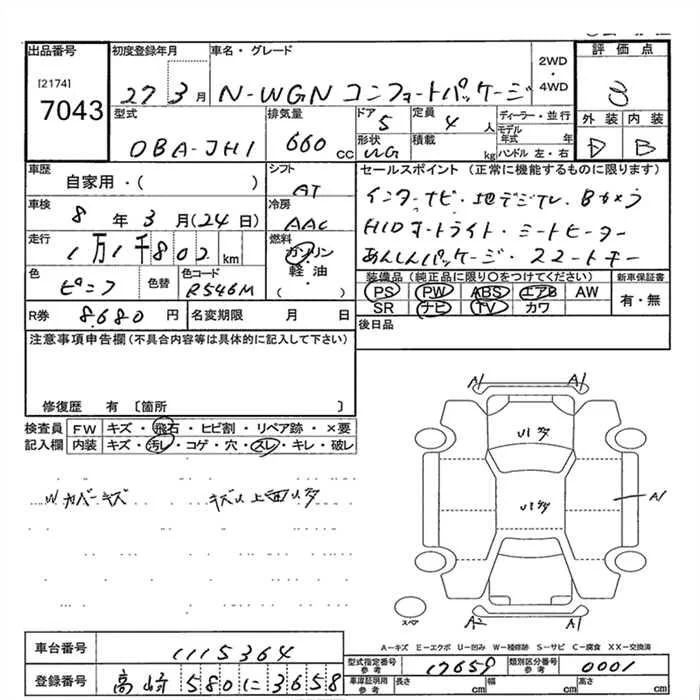 出品番号 初度登録年月 車名・グレード 2WD・4WD 評価点
[2174]
7043
27 3月 N-WGN コンフォートパッケージ
型式 排気量 ドア 定員 ディーラー・並行 外装 内装
DBA-JH1 660 CC 5 4人 モデル年式 年
形状 積載 kg ハンドル 左・右
WG D B
車歴 シフト セールスポイント (正常に機能するものに限ります)
自家用・( ) AT
インターナビ・地デジTV・Bカメラ
車検 冷房
8年3月(24日) AAC
HIDオートライト・シートヒーター
走行 燃料
1万1千802km ガソリン・軽油( )
あんしんパッケージ・スマートキー
色 色替 色コード
ピンク R546M
装備品 (純正品に限り○をつけてください) 新車保証書
PS PW ABS エアB AW 有・無
SR ナビ TV カワ
R券 8.680円 名変期限 月 日
後日品
注意事項申告欄(不具合内容等は具体的に記入して下さい)
修復歴 有 〔箇所 〕
検査員記入欄
FW キズ・飛石・ヒビ割・リペア跡・×要
内装 キズ・汚レ・コゲ・穴・スレ・キレ・破レ
Wカバーキズ
A1 A1
A1
A2 A1
スペア
A-キズ E-エクボ U-凹み W-補修跡 S-サビ C-腐食 XX-交換済
車台番号 1115364
登録番号 高崎 580 に 3658
型式指定番号 参考 17659 類別区分番号 参考 0001
車庫証明用 参考 長さ cm 幅 cm 高さ cm